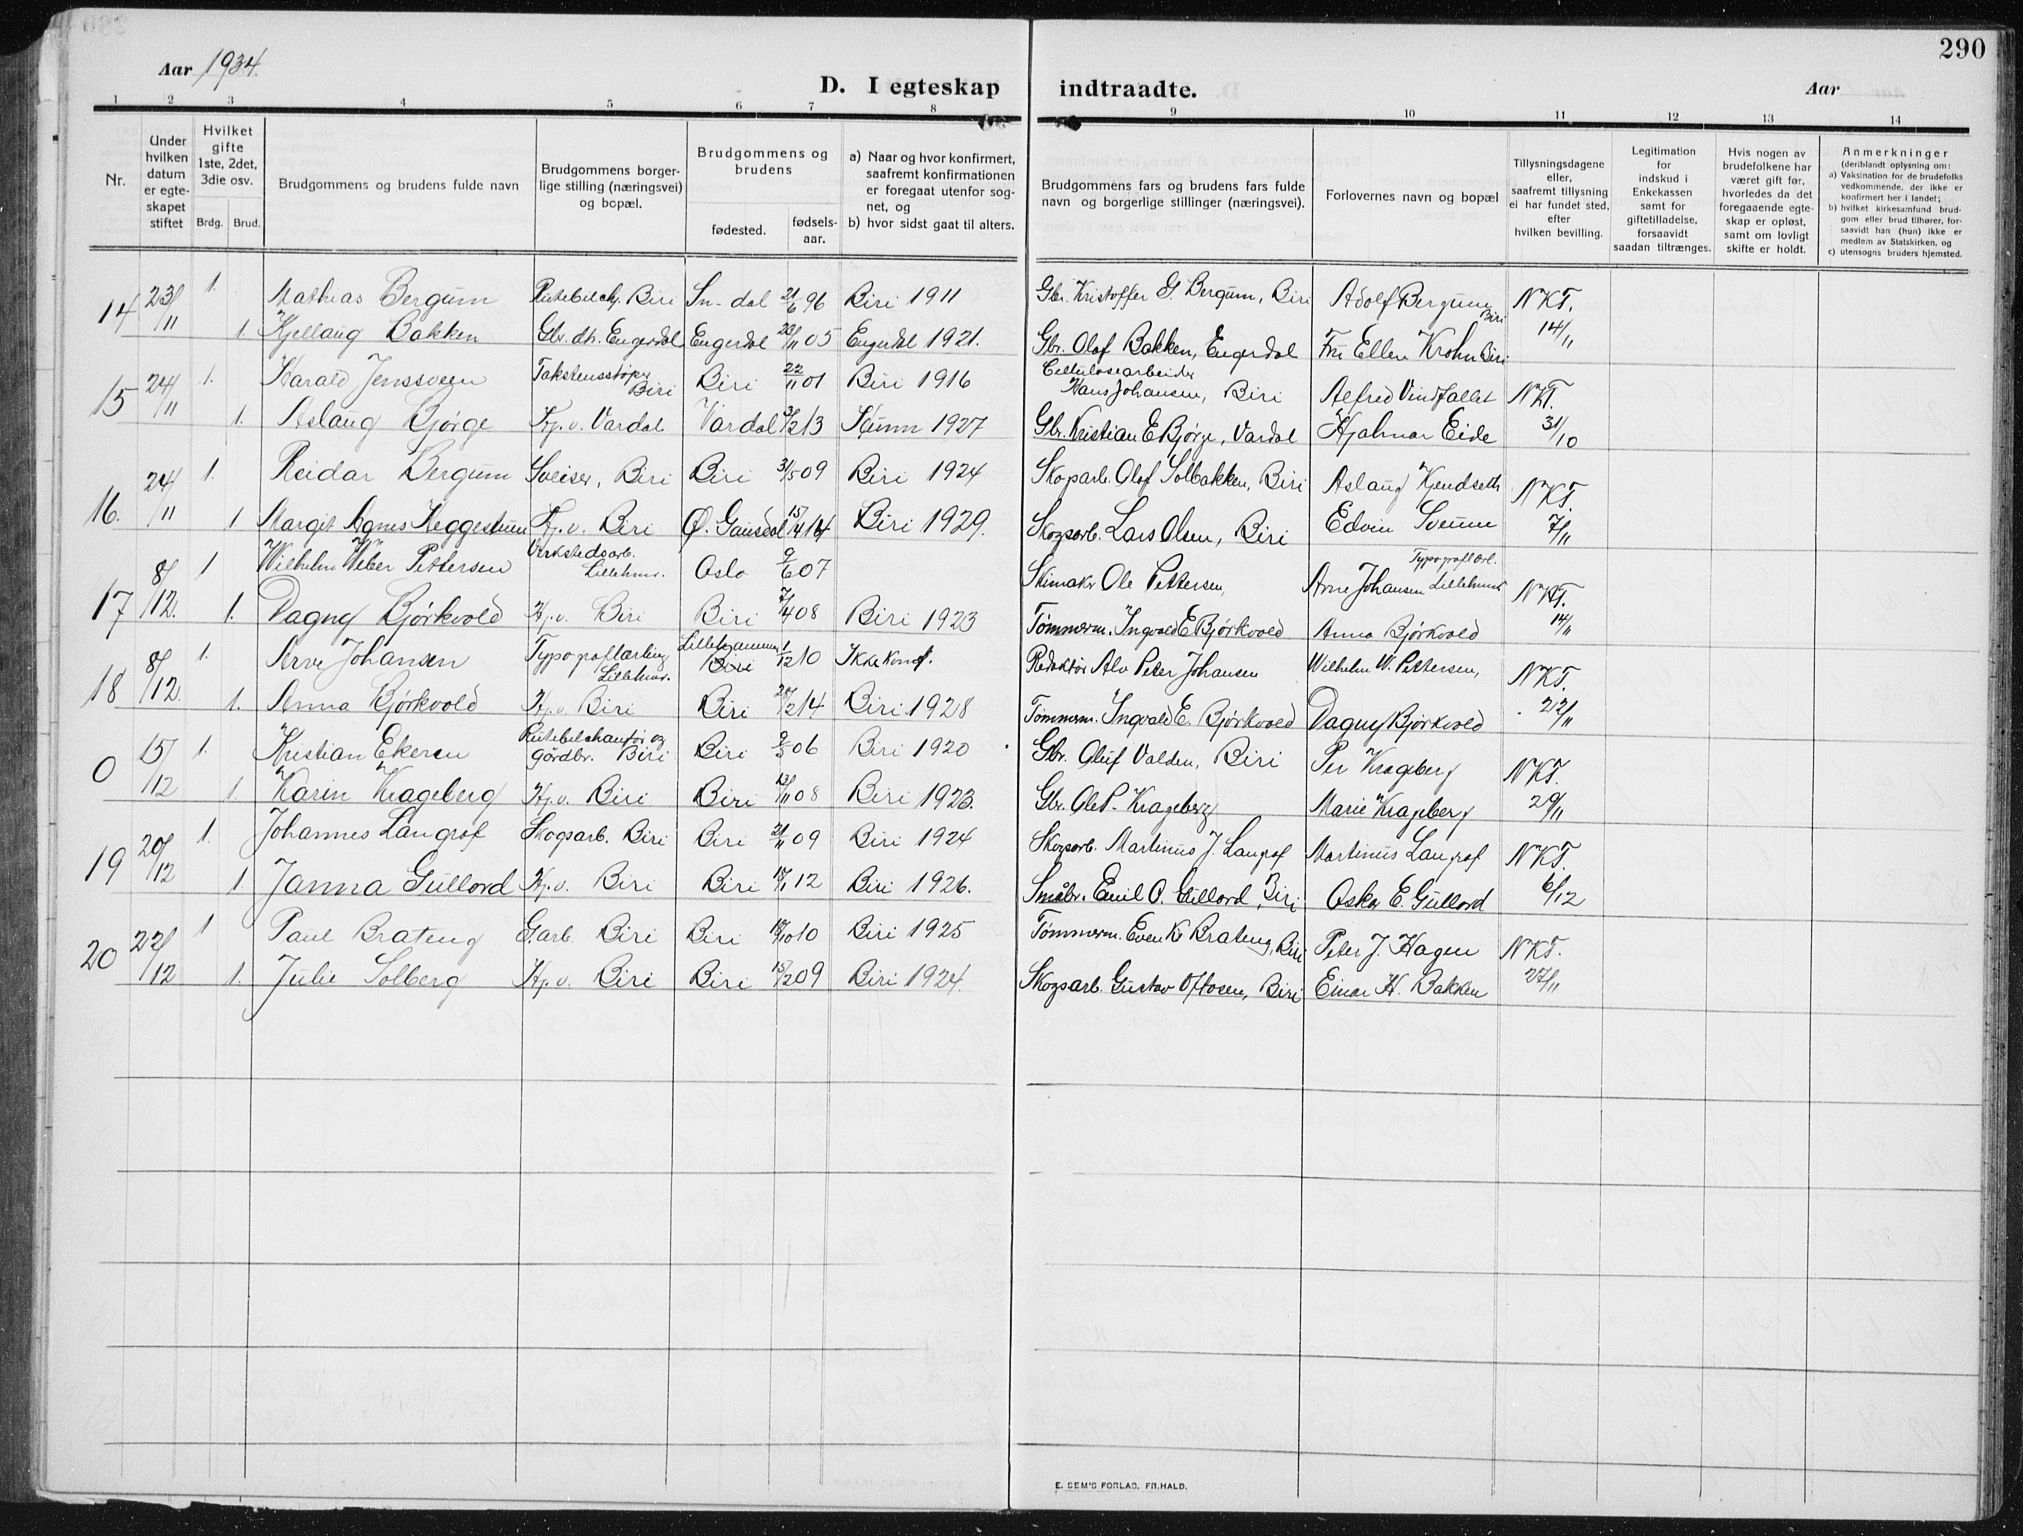 290
Aar 1934.
D. I egteskap indtraadte.
Aar
1 2 3 4 5 6 7 8 9 10 11 12 13 14
Nr.
Under hvilken datum er egteskapet stiftet
Hvilket gifte 1ste, 2det, 3die osv.
Brdg. Brud.
Brudgommens og brudens fulde navn
Brudgommens borgerlige stilling (næringsvei) og bopæl.
Brudgommens og brudens
fødested. fødselsaar.
a) Naar og hvor konfirmert, saafremt konfirmationen er foregaat utenfor sognet, og
b) hvor sidst gaat til alters.
Brudgommens fars og brudens fars fulde navn og borgerlige stillinger (næringsvei).
Forlovernes navn og bopæl
Tillysningsdagene eller, saafremt tillysning ei har fundet sted, efter hvilken bevilling.
Legitimation for indskud i Enkekassen samt for giftetilladelse, forsaavidt saadan tiltrænges.
Hvis nogen av brudefolkene har været gift før, hvorledes da det foregaaende egteskap er opløst, samt om lovligt skifte er holdt.
Anmerkninger
(deriblandt oplysning om:
a) Vaksination for de brudefolks vedkommende, der ikke er konfirmert her i landet;
b) hvilket kirkesamfund brudgom eller brud tilhører, forsaavidt han (hun) ikke er medlem av Statskirken, og
c) utensogns bruders hjemsted.
14 23/11 1. Mathias Bergum Rutebilch. Biri Sn-dal 21/6 96 Biri 1911 Gbr. Kristoffer G. Bergum, Biri Adolf Bergum Biri NKT.
1. Kjellaug Bakken Gbr. dtr. Engerdal Engerdal 23/11 05 Engerdal 1921. Gbr. Olof Bakken, Engerdal Frk Ellen Krohn Biri 14/11
15 24/11 1. Harald Jenssveen Takstensstøper Biri Biri 22/11 01 Biri 1916 Cellulosearbeider Hans Johansen, Biri Alfred Vindfallet NKT.
1. Aslaug Bjørge Hp. v. Vardal Vardal 13 Kunn 1927 Gbr. Kristian E Bjørge, Vardal Hjalmar Eide 31/10
16. 24/11 1. Reidar Bergum Sveiser, Biri Biri 31/5 09 Biri 1924 Skogarb. Olof Solbakken, Biri Aslaug Kjendseth NKT.
1. Margit Agnes Heggestuen Hp. v. Biri Ø. Gausdal 15/4 14 Biri 1929. Skogsarb. Lars Olsen, Biri Edvin Sveum 7/11
17 8/12. 1 Wilhelm Weber Pettersen Verkstedsarb. Lillehmr. Oslo 9/6 07 Skimaker Ole Pettersen, Arne Johansen Lillehmr NKT.
1. Dagny Bjørkvold Hp. v. Biri Biri 7/4 08 Biri 1923 Tømmerm. Ingvald E Bjørkvold Anna Bjørkvold 14/11
18 8/12. 1. Arne Johansen Typograflærling Lillehmr. Lillehammer Biri 1/12 10 Ikke konf. Redaktør Alv Peter Johansen Wilhelm W. Pettersen, NKT.
1. Anna Bjørkvold Hp. v. Biri Biri 14 Biri 1928 Tømmerm. Ingvald E. Bjørkvold Dagny Bjørkvold 22/11
0 15/12 1. Kristian Ekeren Rutebilchauffør og gårdbr. Biri Biri 06 Biri 1920 Gbr. Oluf Valden, Biri Per Krageberg NKT.
1. Karin Krageberg Hp. v. Biri Biri 13/11 08 Biri 1923. Gbr. Ole P. Krageberg Marie Krageberg 29/11
19 20/12 1. Johannes Langrof Skogsarb. Biri Biri 21/11 09 Biri 1924 Skogsarb. Martinus J. Langrof Martinus Langrof NKT.
1. Janna Gullord Hp. v. Biri Biri 17/11 12 Biri 1926. Småbr. Emil O. Gullord, Biri Oskar E. Gullord 6/12
20 22/12 1 Paul Brateng G.arb. Biri Biri 10 Biri 1925 Tømmerm. Even K Brateng, Biri Peter J. Hagen NKT.
1. Julie Solberg Hp. v. Biri Biri 15/2 09 Biri 1924. Skogsarb. Gustav Oftosen, Biri Einar H. Bakken 27/11
E. SEM'S FORLAG, FR.HALD.